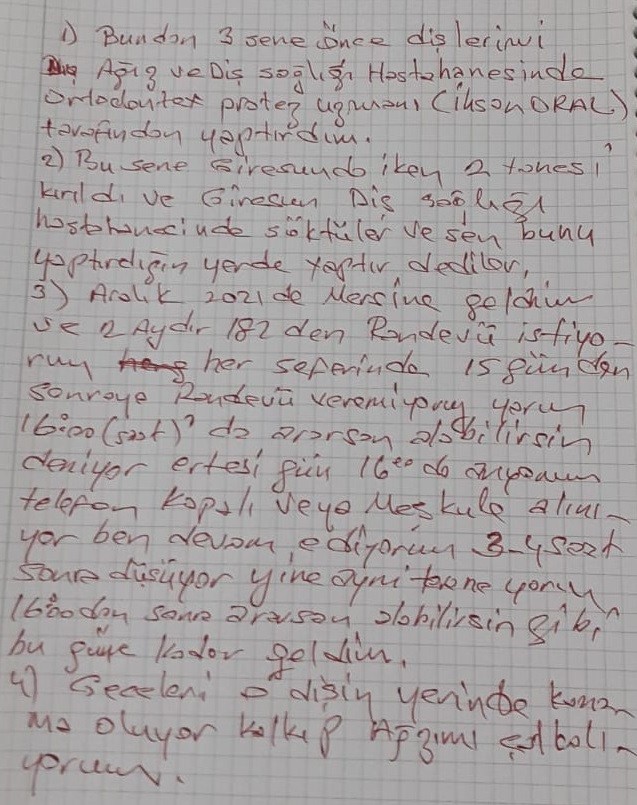 1) Bundan 3 sene önce dişlerimi
Ağız ve Diş sağlığı Hastahanesinde
Ortodontex protez uzmanı (İhsan ORAL)
tarafından yaptırdım.
2) Bu sene Giresunda iken 2 tanesi
kırıldı ve Giresun Diş sağlığı
hastahanesinde söktüler ve sen bunu
yaptırdığın yerde yaptır dediler,
3) Aralık 2021 de Mersine geldim
ve 2 Aydır 182 den Randevü istiyo-
rum her seferinde 15 günden
sonraya Randevü veremiyoruz yarın
16:00 (saat)' da ararsan alabilirsin
deniyor ertesi gün 16:00 da arıyorum
telefon kapalı veya Meşkule alını-
yor ben devam ediyorum 3-4 saat
sonra düşüyor yine aynı terane yarın
16:00 dan sonra ararsan alabilirsin gibi
bu güne kadar geldim.
4) Geceleri o dişin yerinde kana-
ma oluyor kalkıp Ağzımı çalkalı-
yorum.